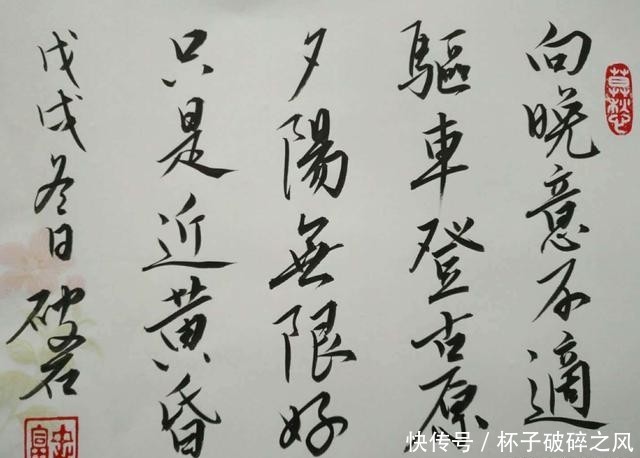 向晚意不適
驅車登古原
夕陽無限好
只是近黄昏
戊戌冬日
快传号／杯子破碎之风